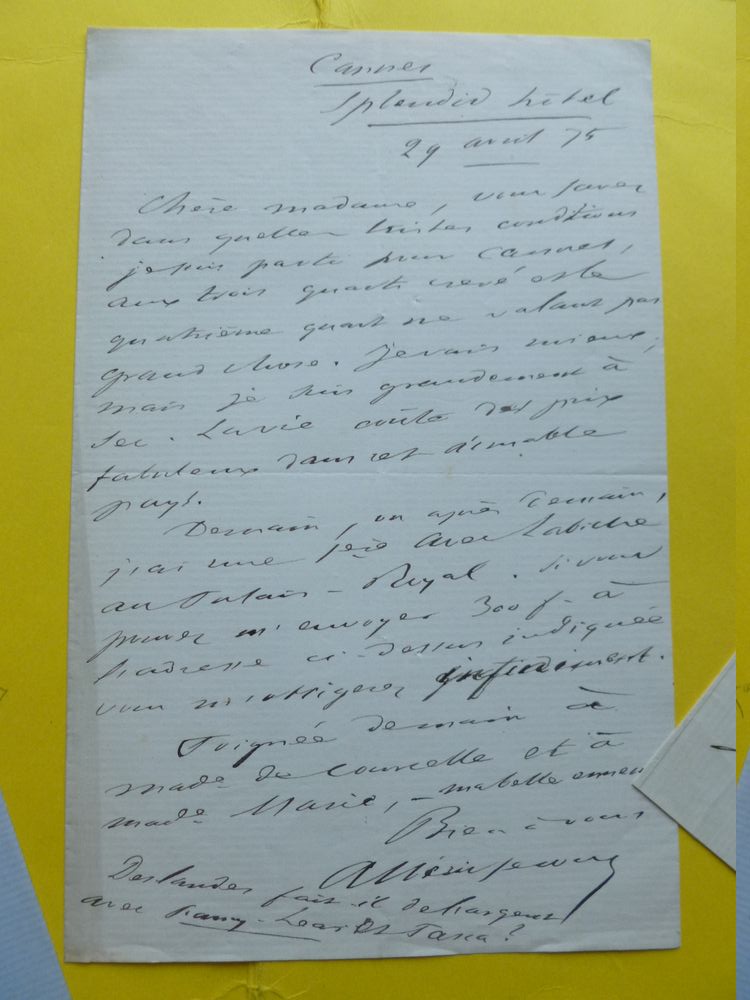 Cannes
Splendid hôtel
29 avril 75
Chère madame, vous savez
dans quelles tristes conditions
je suis parti pour Cannes,
aux trois quarts crevé et le
quatrième quart ne valant pas
grand chose. Je vais mieux,
mais je suis grandement à
sec. La vie coûte des prix
fabuleux dans cet aimable
pays.
Demain, ou après demain,
j'ai une 1ère avec Labiche
au Palais-Royal. Si vous
pouvez m'envoyer 300 f. à
l'adresse ci-dessus indiquée
vous m'obligerez infiniment.
Poignée de main à
made de Courcelle et à
made Marie, - ma belle
Bien à vous
Deslandes fait-il de l'argent
avec Fanny-Lear et